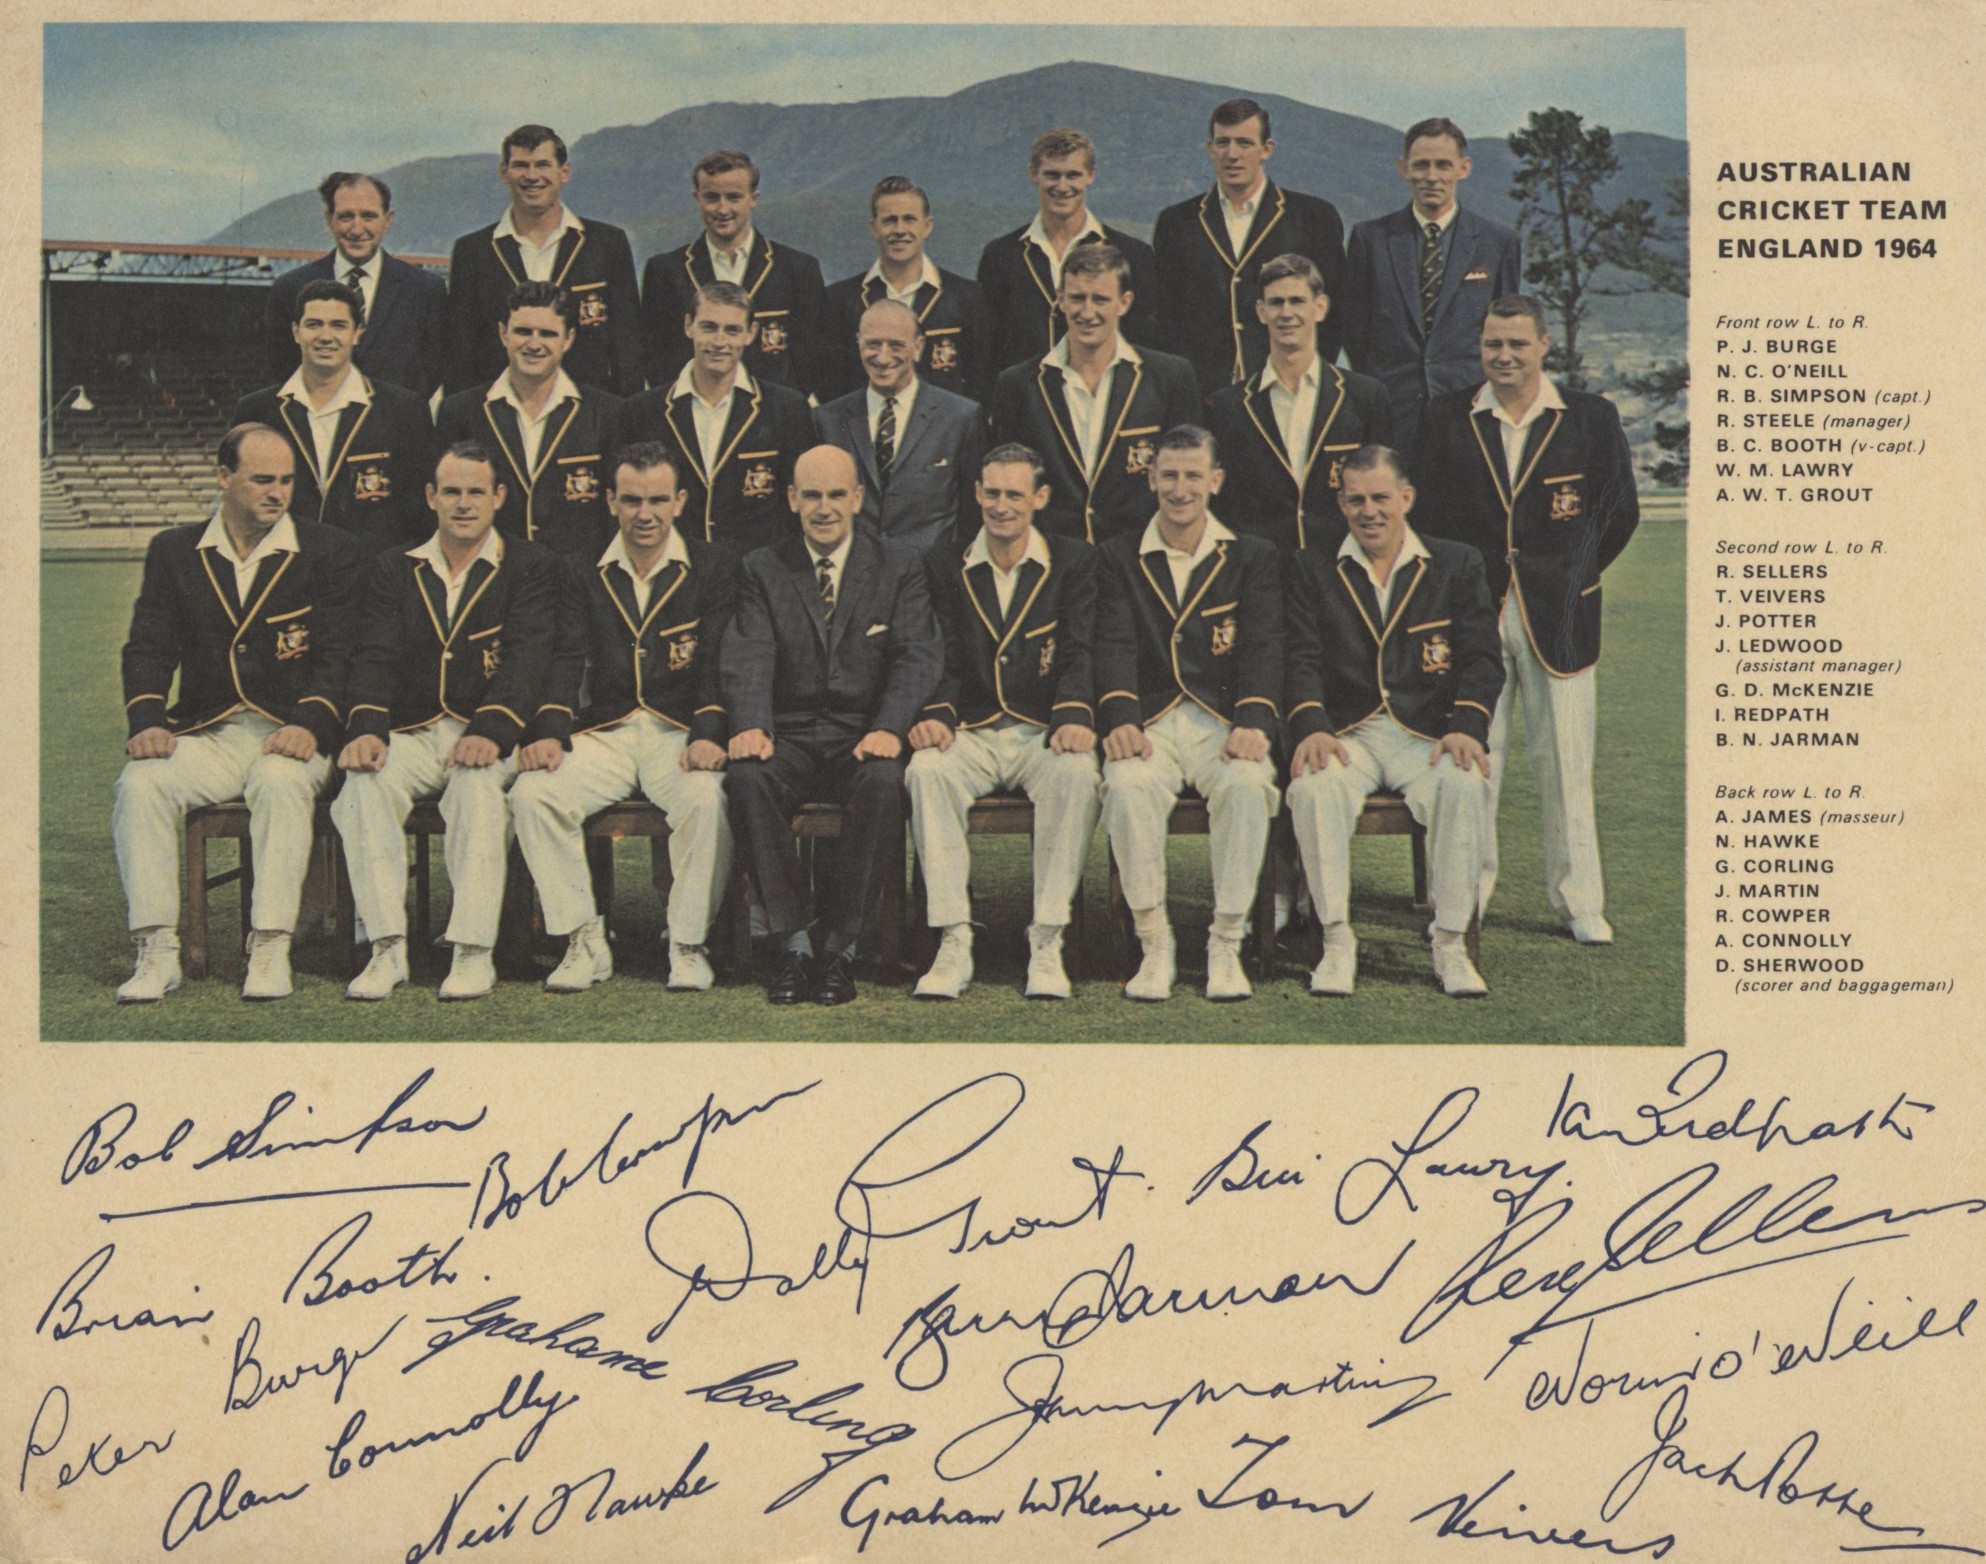 AUSTRALIAN
CRICKET TEAM
ENGLAND 1964
Front row L. to R.
P. J. BURGE
N. C. O'NEILL
R. B. SIMPSON (capt.)
R. STEELE (manager)
B. C. BOOTH (v-capt.)
W. M. LAWRY
A. W. T. GROUT
Second row L. to R.
R. SELLERS
T. VEIVERS
J. POTTER
J. LEDWOOD
(assistant manager)
G. D. McKENZIE
I. REDPATH
B. N. JARMAN
Back row L. to R.
A. JAMES (masseur)
N. HAWKE
G. CORLING
J. MARTIN
R. COWPER
A. CONNOLLY
D. SHERWOOD
(scorer and baggageman)
Bob Simpson
Bob Cowper
Wally Grout.
Bill Lawry.
Ian Redpath
Brian Booth.
Barry Jarman
Rex Sellers
Peter Burge
Grahame Corling
Johnny Martin
Norm O'Neill
Alan Connolly
Neil Hawke
Graham McKenzie
Tom Veivers
Jack Potter